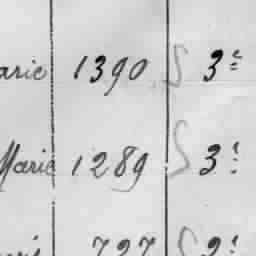 arie 1390 S 3e
Marie 1289 S 3e
727 S